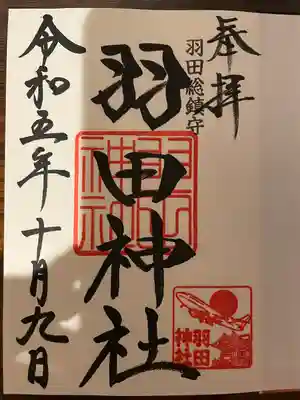 奉拝
羽田総鎮守
羽田神社
羽田
神社
令和五年十月九日
羽田
神社